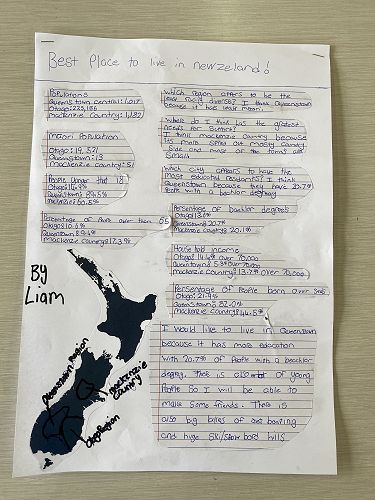 Best Place to live in newzeland!
Populations
Queenstown central: 1,017
Otago: 225,186
mackenzie Country: 1,182
Maori Population
Otago: 19,521
Queenstown: 13
Mackenzie Country: 51
People under that 18
Otago: 14.9%
Queenstown: 84.5%
Mckenzie: 60.5%
Percentage of People over then 65
Otago: 10.6%
Queenstown: 89.4%
Mackenzie country: 17.3%
By
Liam
Queenstown region
mackenzie
Country
otago region
which region appers to be the
least racily diverse? I think Queenstown
because it has least maori.
Where do I think has the greatest
needs for
I think mackenzie Country because
its more spred out mostly country
side and most of the towns are
small
Which city appears to have the
most educated residents? I think
Queenstown because they have 20.7%
People with a bachlor degree
Persentage of bachlor degrees
Otago: 13.6%
Queenstown: 20.7%
Mackenzie country: 20.1%
House hold income
Otago: 14.4% over 70.000
Queenstown: 5.3% over 70.000
Mackenzie country: 13.7% over 70.000
Persentage of People born over seas
Otago: 21.9%
Queenstown: 52.0%
Mackenzie country: 44.5%
I would like to live in Queenstown
because it has more education
with 20.7% of People with a bachlor
degrey, There is also of young
People So I will be able to
make some friends. There is
also big lakes of boating
and huge Ski/Snow bord hills